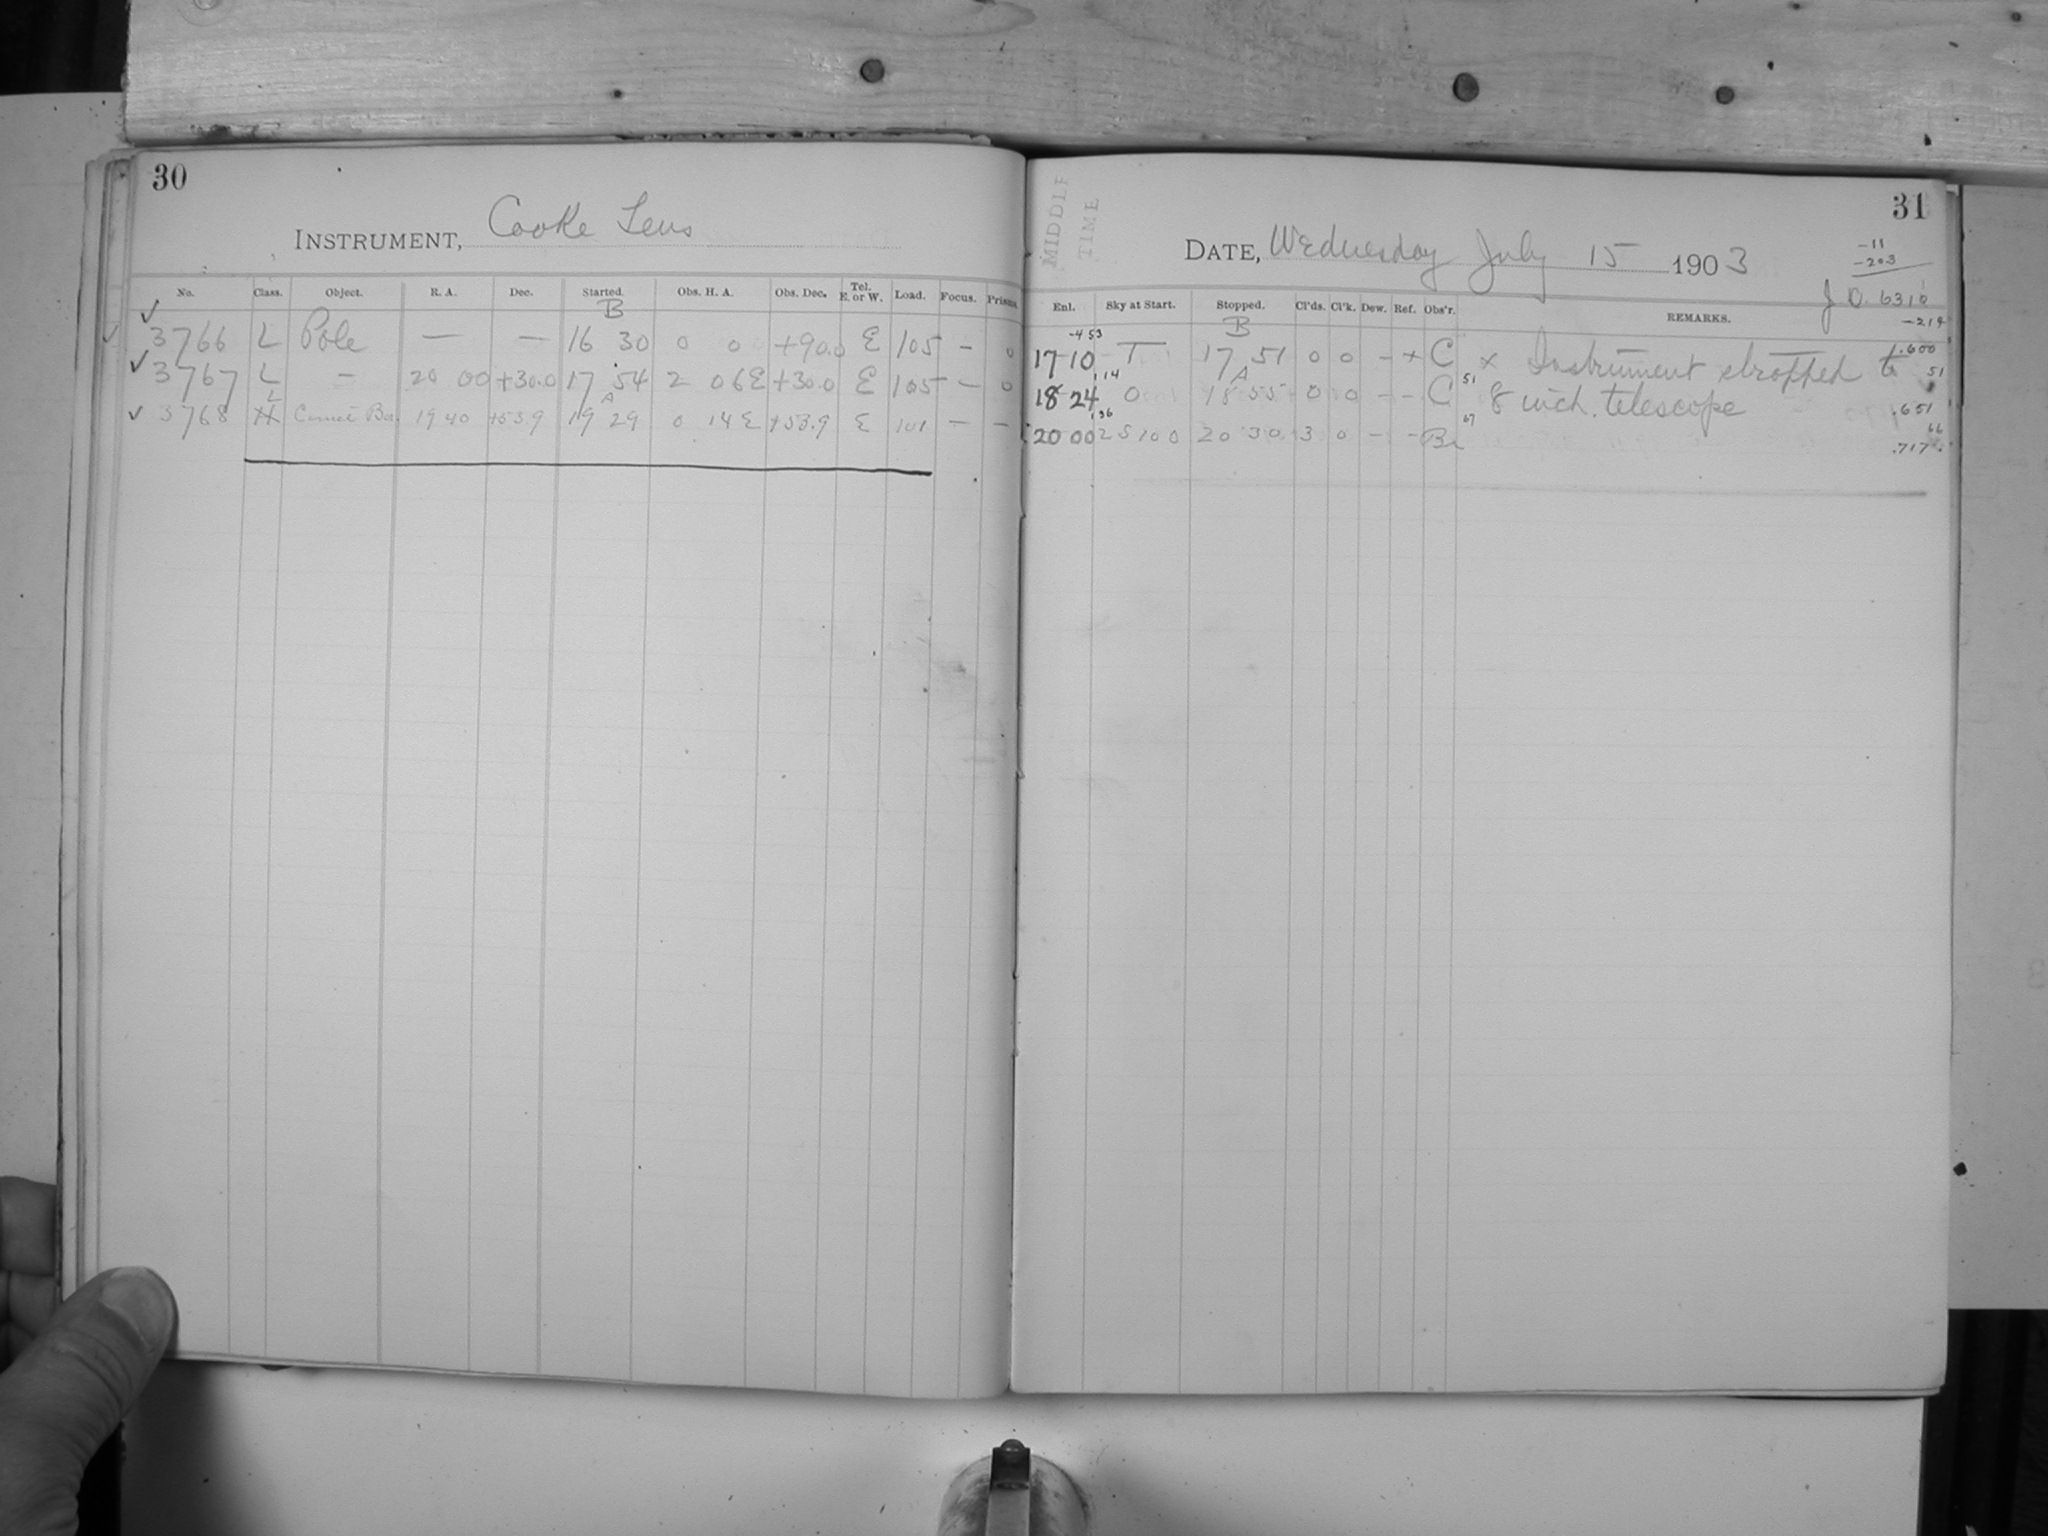 30
INSTRUMENT, Cooke Lens
No. Class. Object. R. A. Dec. Started. Obs. H. A. Obs. Dec. Tel. E. or W. Load. Focus. Prisms.
B
✓ 3766 L Pole — — 16 30 0 0 +90.0 E 105 – 0
✓ 3767 L – 20 00 +30.0 17 54 2 06E +30.0 E 105 – 0
L A
✓ 3768 H Comet Bor. 19 40 +53.9 19 29 0 14E +53.9 E 101 – –
MIDDLE
TIME
31
DATE, Wednesday July 15 1903
-11
-203
J D. 6310
-214
Enl. Sky at Start. Stopped. Cl'ds. Cl'k. Dew. Ref. Obs'r. REMARKS.
-4 53 B
17 10 T 17 51 0 0 – + C × Instrument strapped to .600
1 14 A 51 51
18 24 0 18 55 0 0 – – C 8 inch. telescope .651
1 36 67 66
20 00 25 100 20 30 3 0 – – Br .717